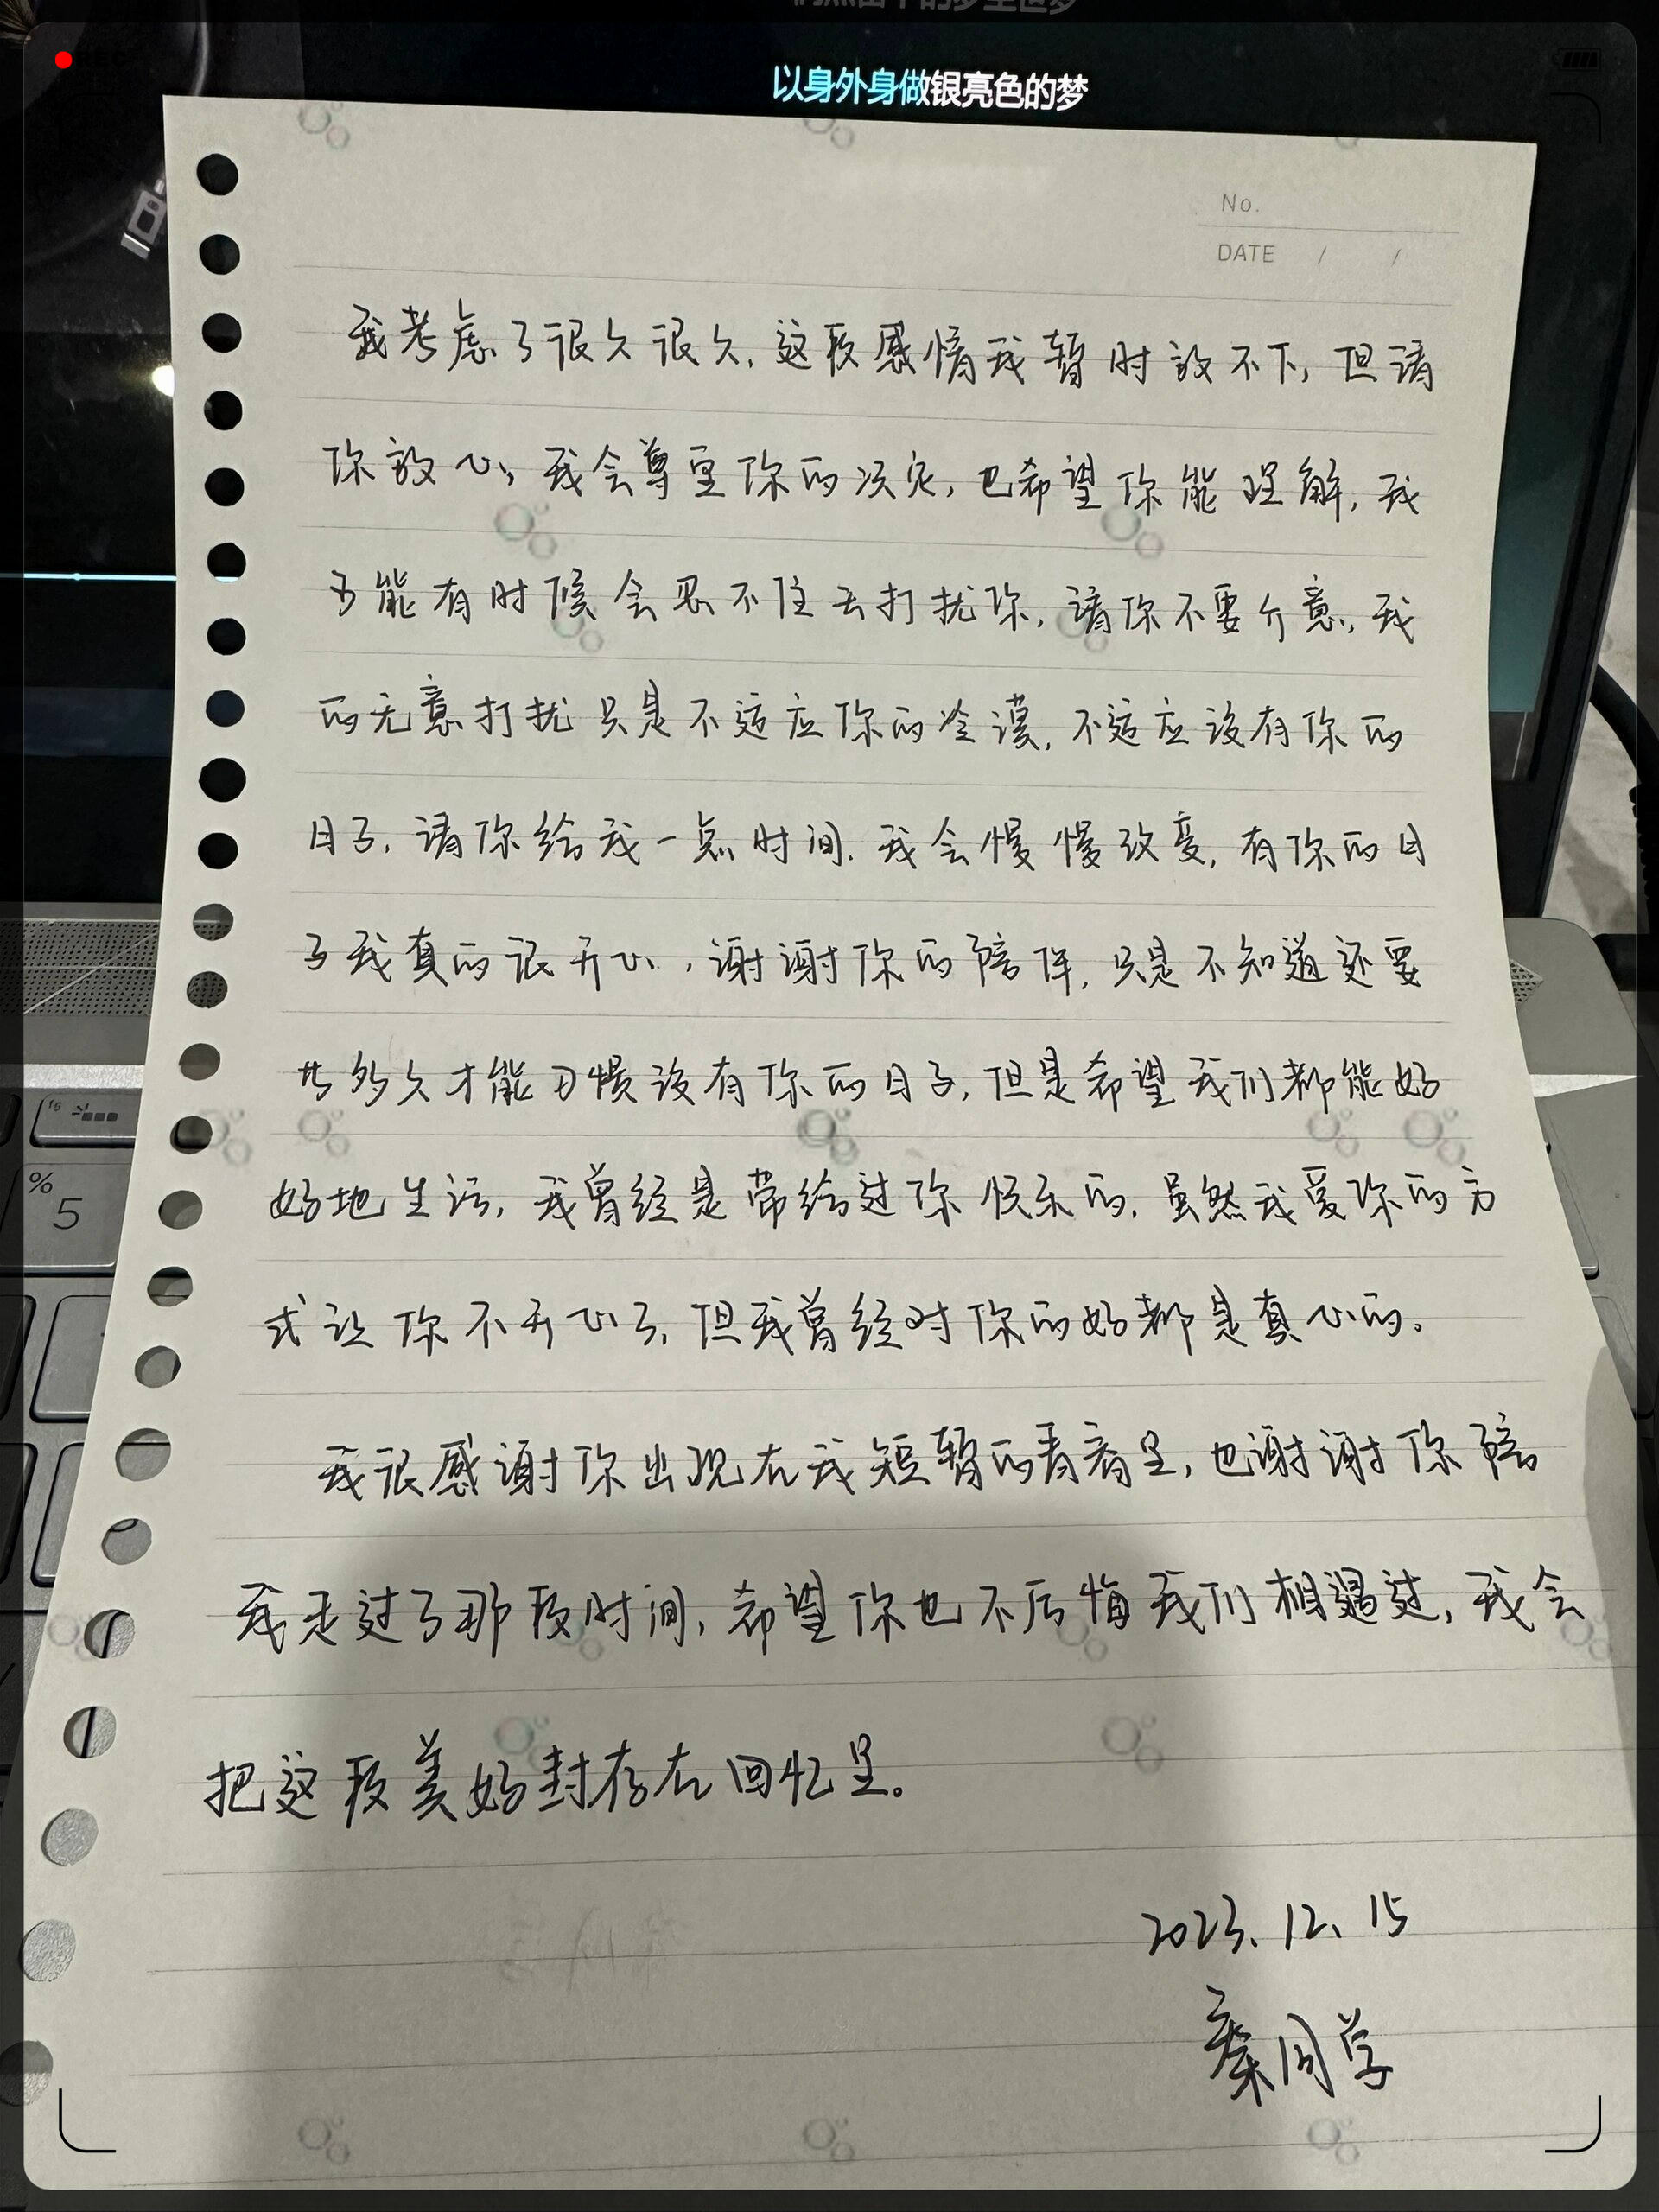 以身外身做银亮色的梦
No.
DATE / /
我考虑了很久很久,这段感情我暂时放不下,但请
你放心,我会尊重你的决定,也希望你能理解,我
可能有时候会忍不住去打扰你,请你不要介意,我
的无意打扰只是不适应你的冷漠,不适应没有你的
日子,请你给我一点时间.我会慢慢改变,有你的日
子我真的很开心,谢谢你的陪伴,只是不知道还要
花多久才能习惯没有你的日子,但是希望我们都能好
好地生活,我曾经是带给过你快乐的,虽然我爱你的方
式让你不开心了,但我曾经对你的好都是真心的。
我很感谢你出现在我短暂的青春里,也谢谢你陪
我走过了那段时间,希望你也不后悔我们相遇过,我会
把这段美好封存在回忆里。
2023.12.15
秦同学
f5
%
5